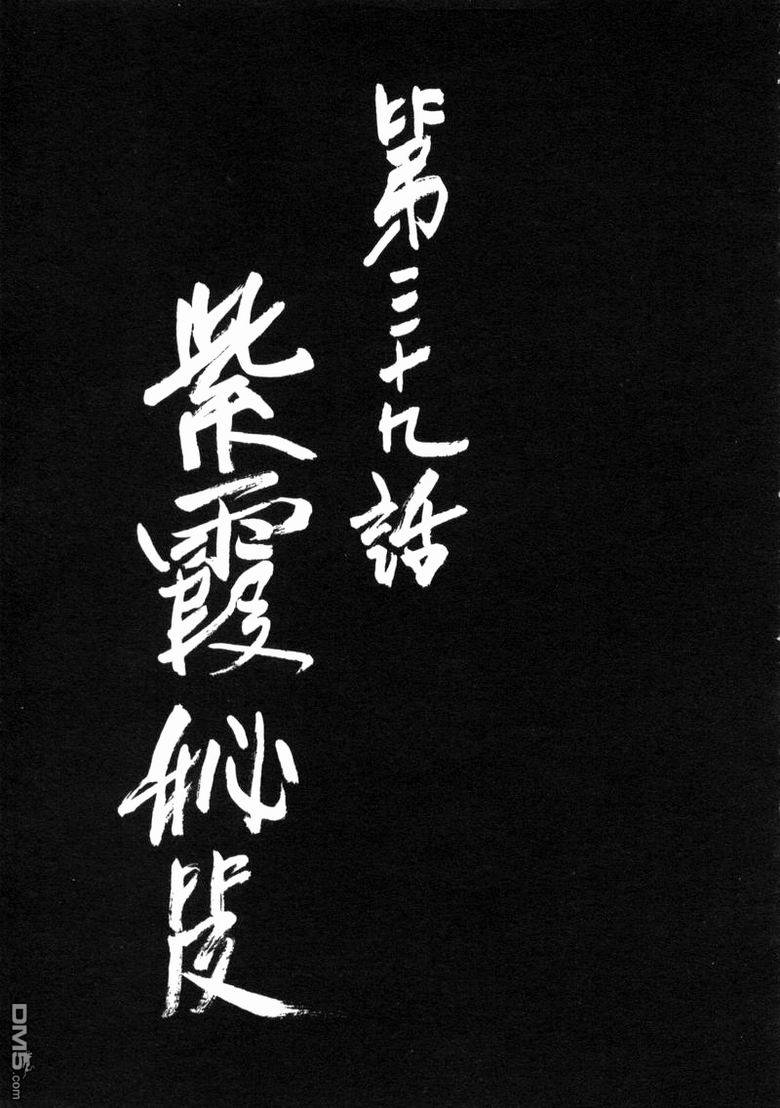 第三十九話
紫霞秘笈
DM5.com